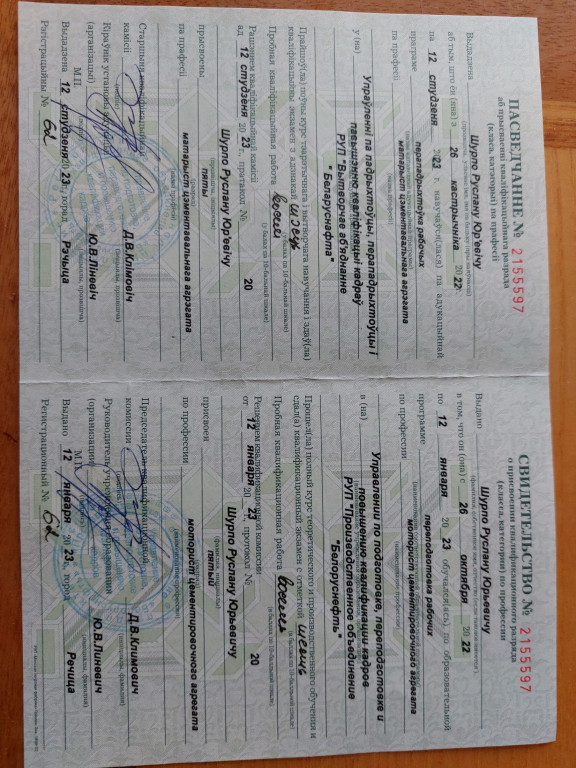 ПАСВЕДЧАННЕ № 2155597
аб прысваенні кваліфікацыйнага разрада
(класа, катэгорыі) па прафесіі
Выдадзена Шурпо Руслану Юр'евічу
аб тым, што ён (яна) з 26 кастрычніка 2022 г.
па 12 студзеня 2023 г. навучаўся(лася) па адукацыйнай
праграме перападрыхтоўка рабочых
па прафесіі матарыст цэментавальнага агрэгата
у (на) Упраўленні па падрыхтоўцы, перападрыхтоўцы і
павышэнню кваліфікацыі кадраў
РУП "Вытворчае аб'яднанне
"Беларуснафта"
Прайшоў(ла) поўны курс тэарэтычнага і вытворчага навучання і здаў(ла)
кваліфікацыйны экзамен з адзнакай шэсць
(у балах па 10-бальнай шкале)
Пробная кваліфікацыйная работа восем
(у балах па 10-бальнай шкале)
Рашэннем кваліфікацыйнай камісіі
ад 12 студзеня 2023 г., пратакол № 20
Шурпо Руслану Юр'евічу
прысвоены пяты
па прафесіі матарыст цэментавальнага агрэгата
Старшыня кваліфікацыйнай
камісіі Д.В.Клімовіч
Кіраўнік установы адукацыі
(арганізацыі) Ю.В.Ліневіч
М.П.
Выдадзена 12 студзеня 2023 г., горад Рэчыца
Рэгістрацыйны № 62
СВИДЕТЕЛЬСТВО № 2155597
о присвоении квалификационного разряда
(класса, категории) по профессии
Выдано Шурпо Руслану Юрьевичу
в том, что он (она) с 26 октября 2022
по 12 января 2023 обучался(ась) по образовательной
программе переподготовка рабочих
по профессии моторист цементировочного агрегата
в (на) Управлении по подготовке, переподготовке и
повышению квалификации кадров
РУП "Производственное объединение
"Белоруснефть"
Прошел(ла) полный курс теоретического и производственного обучения и
сдал(а) квалификационный экзамен с отметкой шесть
(в баллах по 10-балльной шкале)
Пробная квалификационная работа восемь
(в баллах по 10-балльной шкале)
Решением квалификационной комиссии
от 12 января 2023 г., протокол № 20
Шурпо Руслану Юрьевичу
присвоен пятый
по профессии моторист цементировочного агрегата
Председатель квалификационной
комиссии Д.В.Климович
Руководитель учреждения образования
(организации) Ю.В.Линевич
М.П.
Выдано 12 января 2023 г., город Речица
Регистрационный № 62